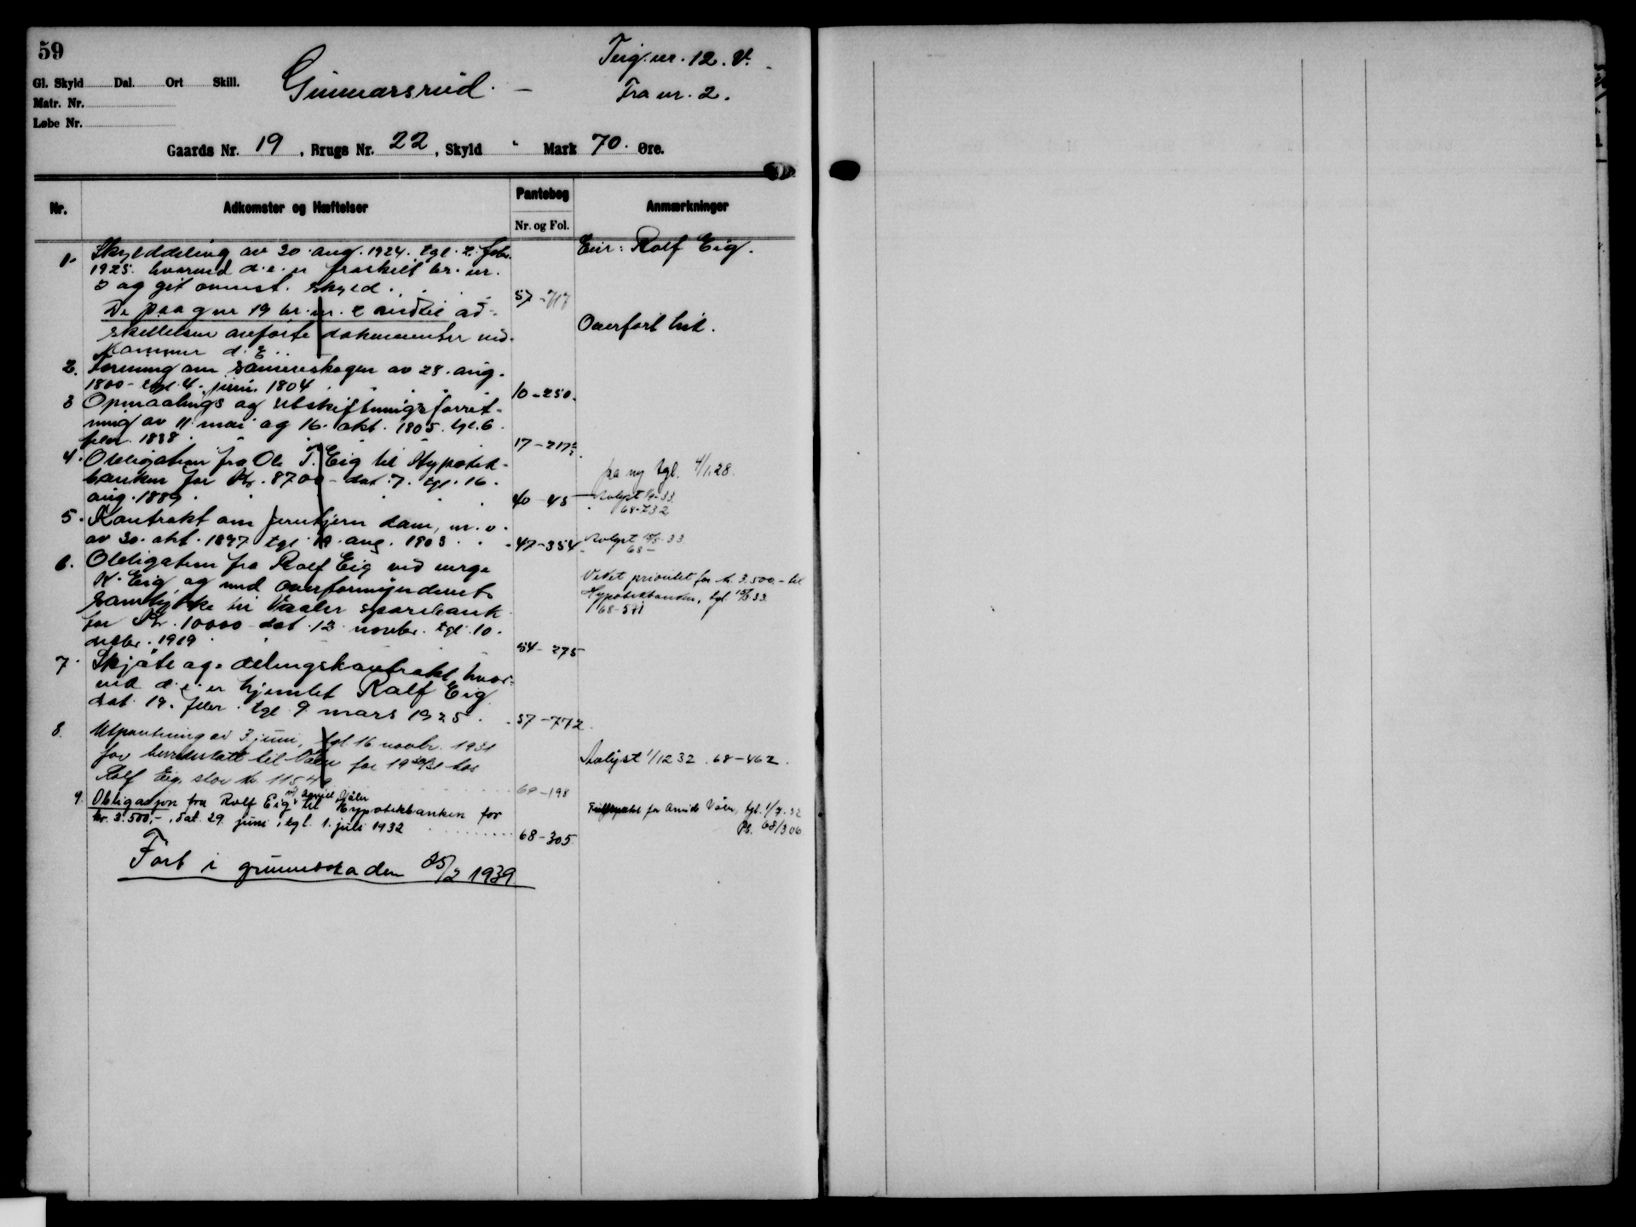 59
Gl. Skyld Dal. Ort Skill.
Matr. Nr.
Løbe Nr.
Gunnarsrud. —
Teig nr. 12. V.
Fra nr. 2.
Gaards Nr. 19, Brugs Nr. 22, Skyld " Mark 70. Øre.
Nr.
Adkomster og Hæftelser
Pantebog
Nr. og Fol.
Anmærkninger
1. Skylddeling av 30. aug. 1924. tgl. 2. febr.
1925. hvorved d. e. er fraskilt br. nr.
2 og git ommst. skyld . . . 57-717
Eier: Rolf Eig.
De paa gnr 19 br. nr. 2 indtil ad-
skillelsen anførte dokumenter ved-
kommer d. E. . .
Overført hit.
2. Forening om sameieskogen av 28. aug.
1800 - tgl. 4. juni 1804 . . . 10-250.
3 Opmaalings og utskiftningsforret-
ning av 11. mai og 16. okt. 1805. tgl. 6
febr. 1838 . . . 17-217
4. Obligation fra Ole T. Eig til Hypotek-
banken for Kr. 8700 - dat. 7. tgl. 16.
aug. 1889 . . . 40-45
paa ny tgl. 4/1.28.
Avlyst
68-232
5. Kontrakt om dam, m. v.
av 30. okt. 1897 tgl 19. aug. 1903 . . 47-354
Avlyst 33
68-
6. Obligation fra Rolf Eig ved verge
K. Eig og med overformynderiets
samtykke til Vaaler sparebank
for Kr. 10000 dat. 12. novbr. tgl. 10.
desbr. 1919 . 54-275
Veket prioritet for kr. 3.500,- til
Hypotekbanken, tgl 33
68-571
7. Skjøte og delingskontrakt, hvor-
ved d. e. er hjemlet Rolf Eig
dat. 19. febr. tgl. 9 mars 1925 . . 57-772.
8. Utpantning av 3 juni, tgl 16 novbr. 1931
for herredskatt til Våler for 1930/31 hos
Rolf Eig, stor kr. 115,49 . . . 68-198
Avlyst 1/12 32. 68-462.
9. Obligasjon fra Rolf Eig til Hypotekbanken for
kr. 3.500,-, dat. 29 juni, tgl. 1. juli 1932 . . . 68-305
for Våler, tgl. 1/7. 32
Pb. 68/306
Ført i grunnboka den 25/2 1939